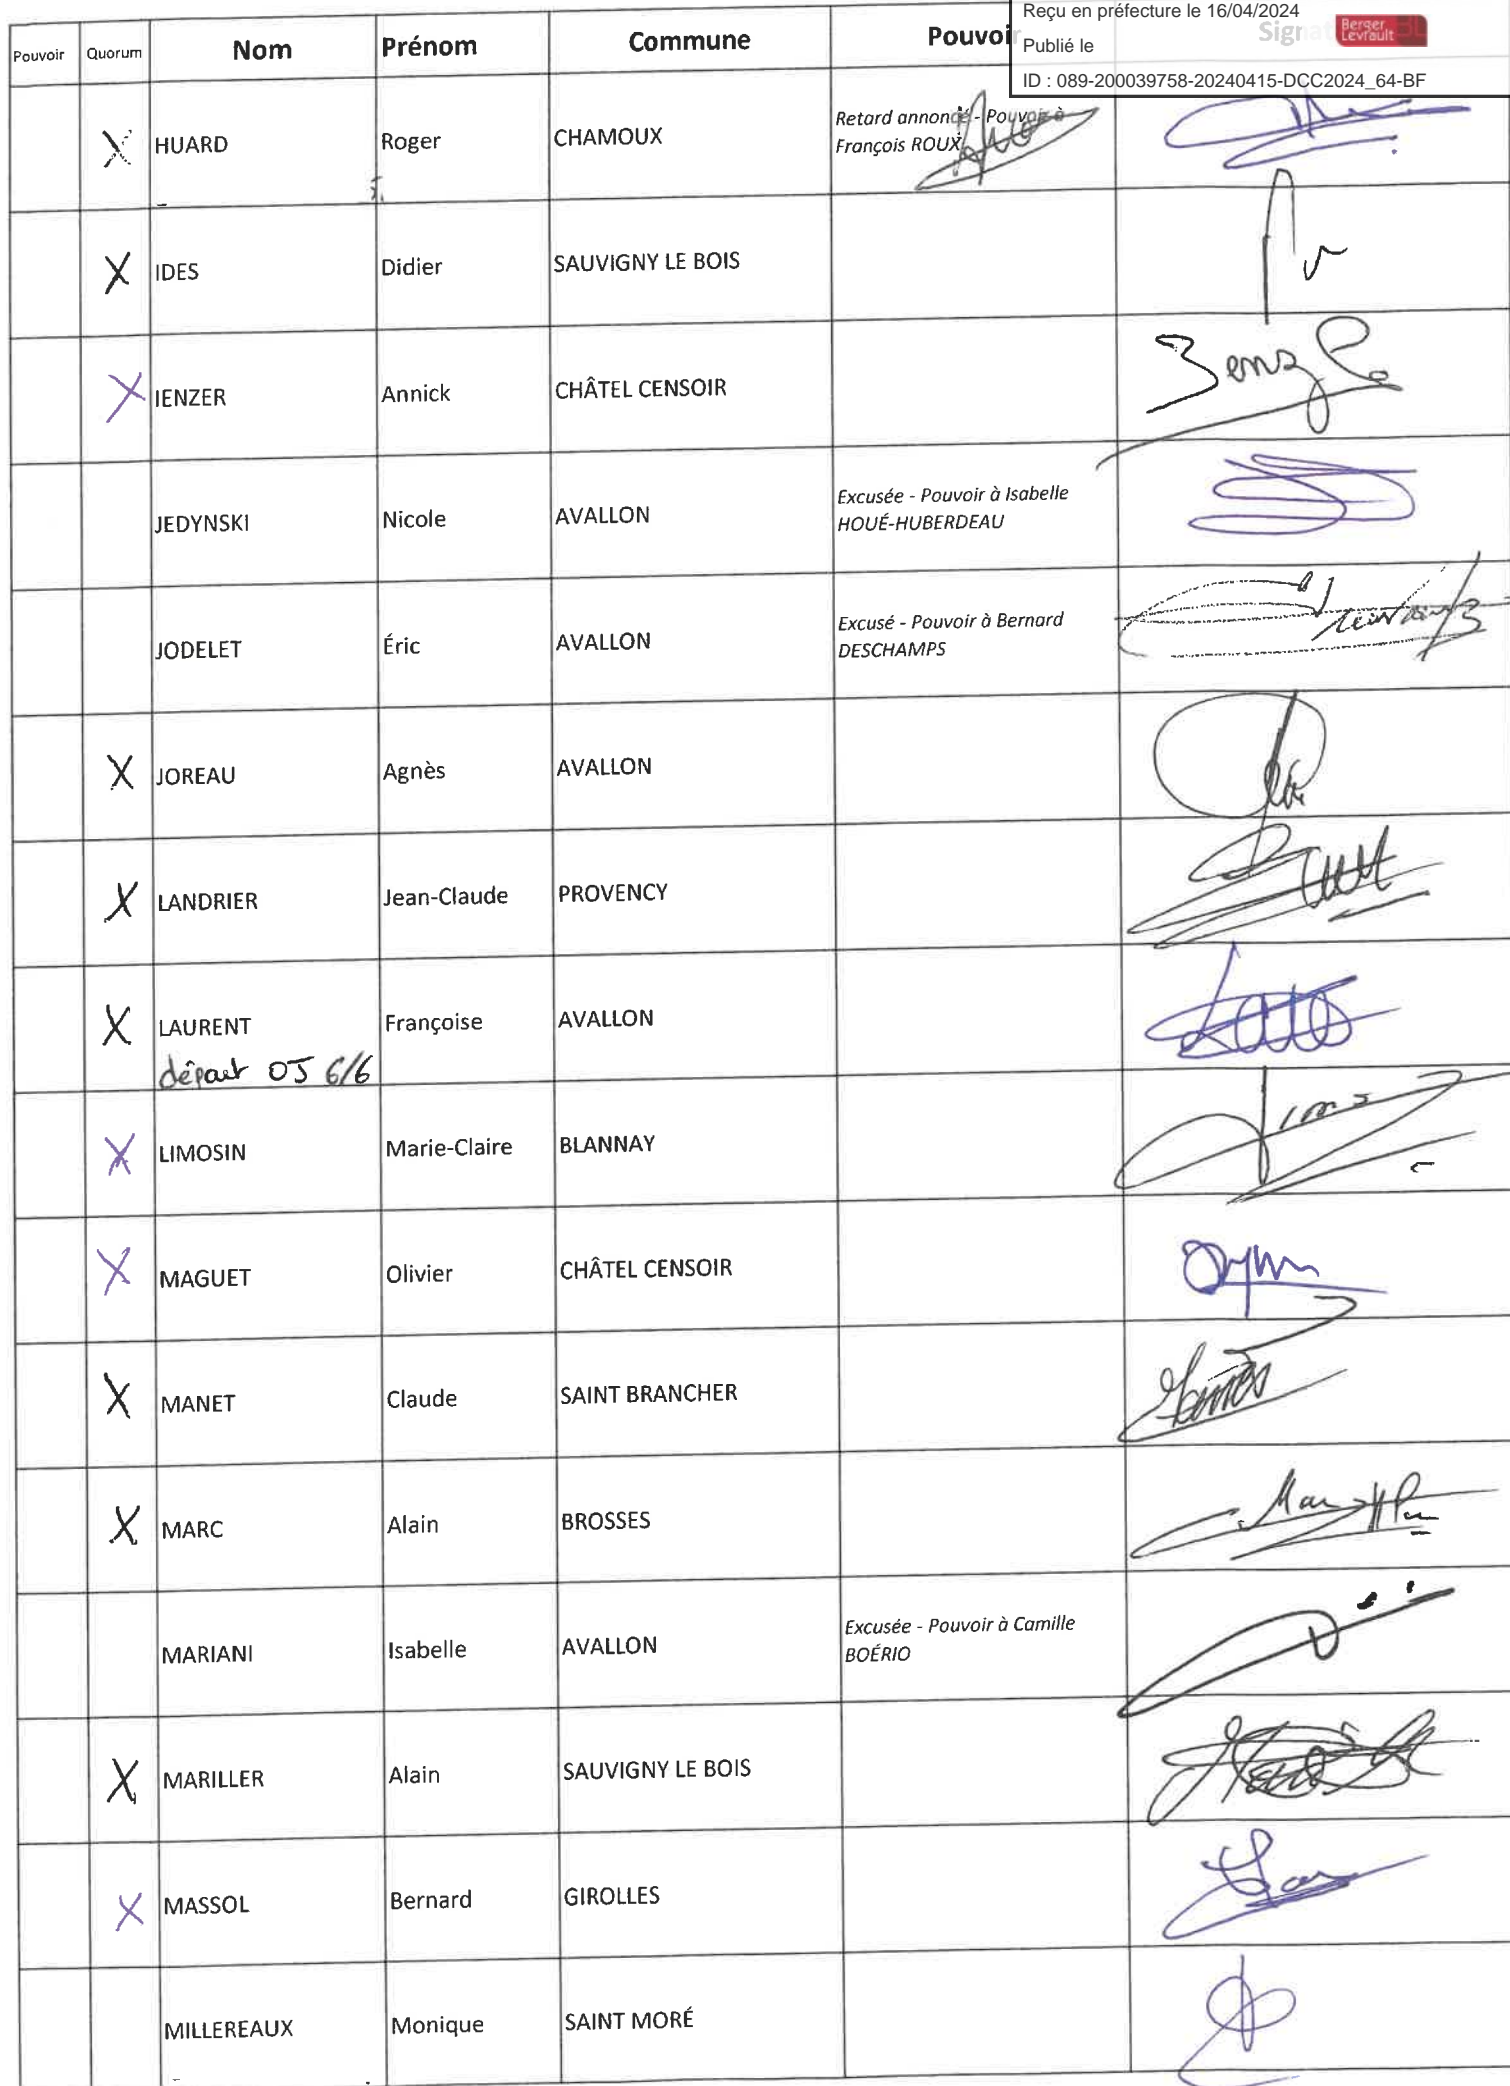 Reçu en préfecture le 16/04/2024
Publié le
Berger
Levrault
ID : 089-200039758-20240415-DCC2024_64-BF
Pouvoir Quorum Nom Prénom Commune Pouvoir
X HUARD Roger CHAMOUX Retard annoncé - Pouvoir à
François ROUX
X IDES Didier SAUVIGNY LE BOIS
X IENZER Annick CHÂTEL CENSOIR
JEDYNSKI Nicole AVALLON Excusée - Pouvoir à Isabelle
HOUÉ-HUBERDEAU
JODELET Éric AVALLON Excusé - Pouvoir à Bernard
DESCHAMPS
X JOREAU Agnès AVALLON
X LANDRIER Jean-Claude PROVENCY
X LAURENT Françoise AVALLON
départ OJ 6/6
X LIMOSIN Marie-Claire BLANNAY
X MAGUET Olivier CHÂTEL CENSOIR
X MANET Claude SAINT BRANCHER
X MARC Alain BROSSES
MARIANI Isabelle AVALLON Excusée - Pouvoir à Camille
BOÉRIO
X MARILLER Alain SAUVIGNY LE BOIS
X MASSOL Bernard GIROLLES
MILLEREAUX Monique SAINT MORÉ